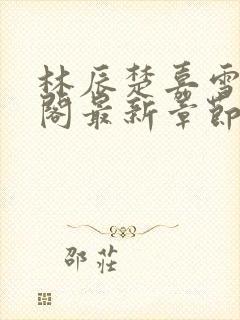 林辰楚嘉雪
阁最新章节
邵庄